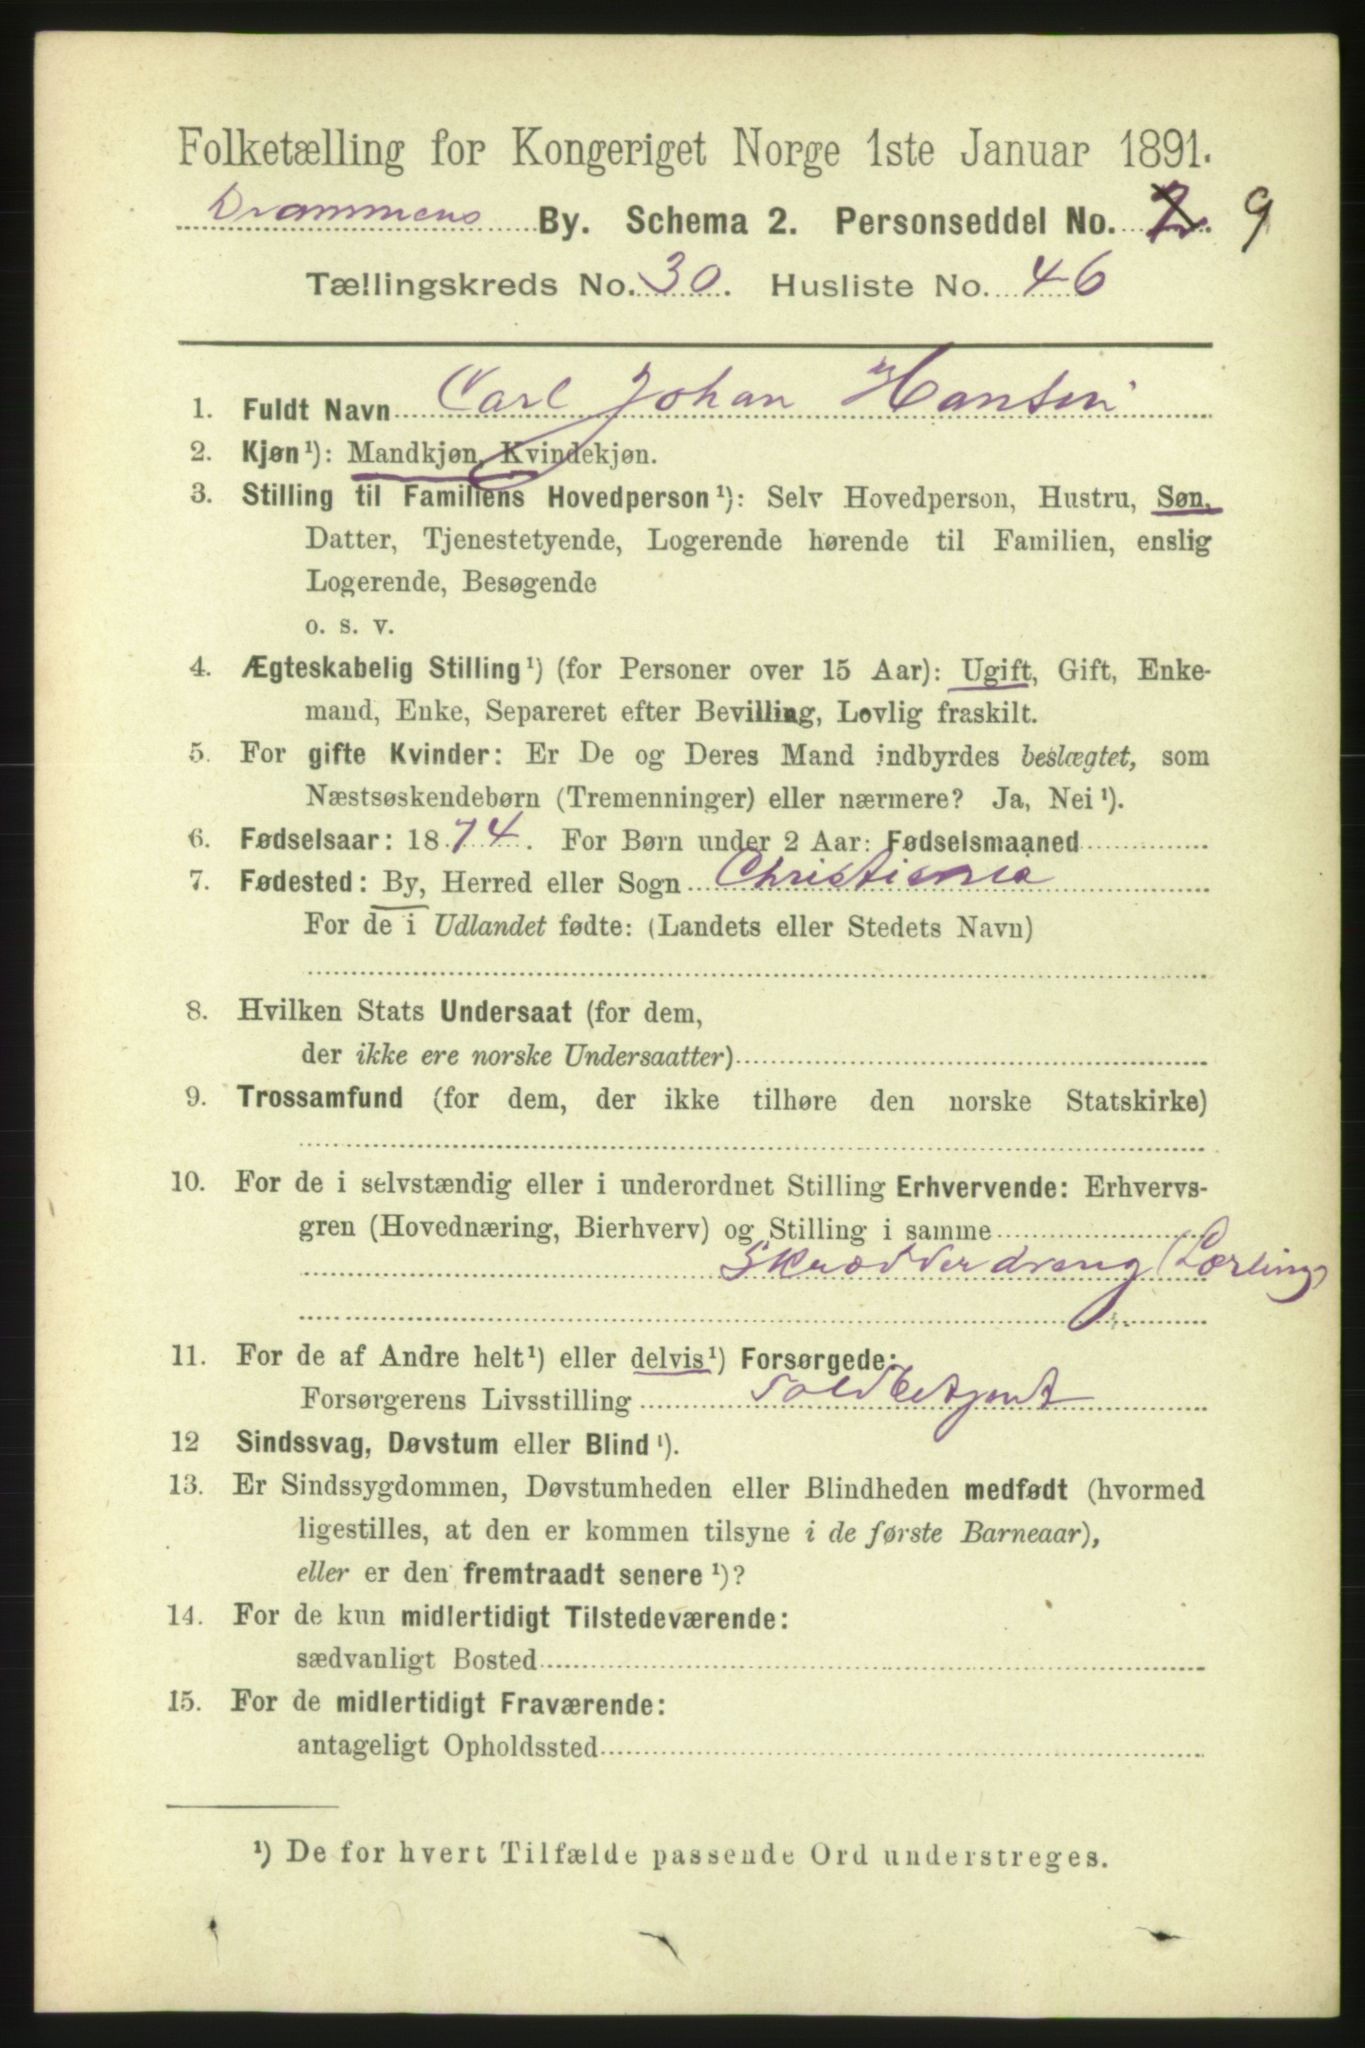 Folketælling for Kongeriget Norge 1ste Januar 1891.
Drammens By. Schema 2. Personseddel No. 2. 9
Tællingskreds No. 30. Husliste No. 46
1. Fuldt Navn Carl Johan Hansen
2. Kjøn¹): Mandkjøn, Kvindekjøn.
3. Stilling til Familiens Hovedperson¹): Selv Hovedperson, Hustru, Søn,
Datter, Tjenestetyende, Logerende hørende til Familien, enslig
Logerende, Besøgende
o. s. v.
4. Ægteskabelig Stilling¹) (for Personer over 15 Aar): Ugift, Gift, Enke-
mand, Enke, Separeret efter Bevilling, Lovlig fraskilt.
5. For gifte Kvinder: Er De og Deres Mand indbyrdes beslægtet, som
Næstsøskendebørn (Tremenninger) eller nærmere? Ja, Nei¹).
6. Fødselsaar: 1874. For Børn under 2 Aar: Fødselsmaaned
7. Fødested: By, Herred eller Sogn Christiania
For de i Udlandet fødte: (Landets eller Stedets Navn)
8. Hvilken Stats Undersaat (for dem,
der ikke ere norske Undersaatter)
9. Trossamfund (for dem, der ikke tilhøre den norske Statskirke)
10. For de i selvstændig eller i underordnet Stilling Erhvervende: Erhvervs-
gren (Hovednæring, Bierhverv) og Stilling i samme
Skrædderdreng (Lærling)
11. For de af Andre helt¹) eller delvis¹) Forsørgede:
Forsørgerens Livsstilling Toldbetjent
12 Sindssvag, Døvstum eller Blind¹).
13. Er Sindssygdommen, Døvstumheden eller Blindheden medfødt (hvormed
ligestilles, at den er kommen tilsyne i de første Barneaar),
eller er den fremtraadt senere¹)?
14. For de kun midlertidigt Tilstedeværende:
sædvanligt Bosted
15. For de midlertidigt Fraværende:
antageligt Opholdssted
¹) De for hvert Tilfælde passende Ord understreges.